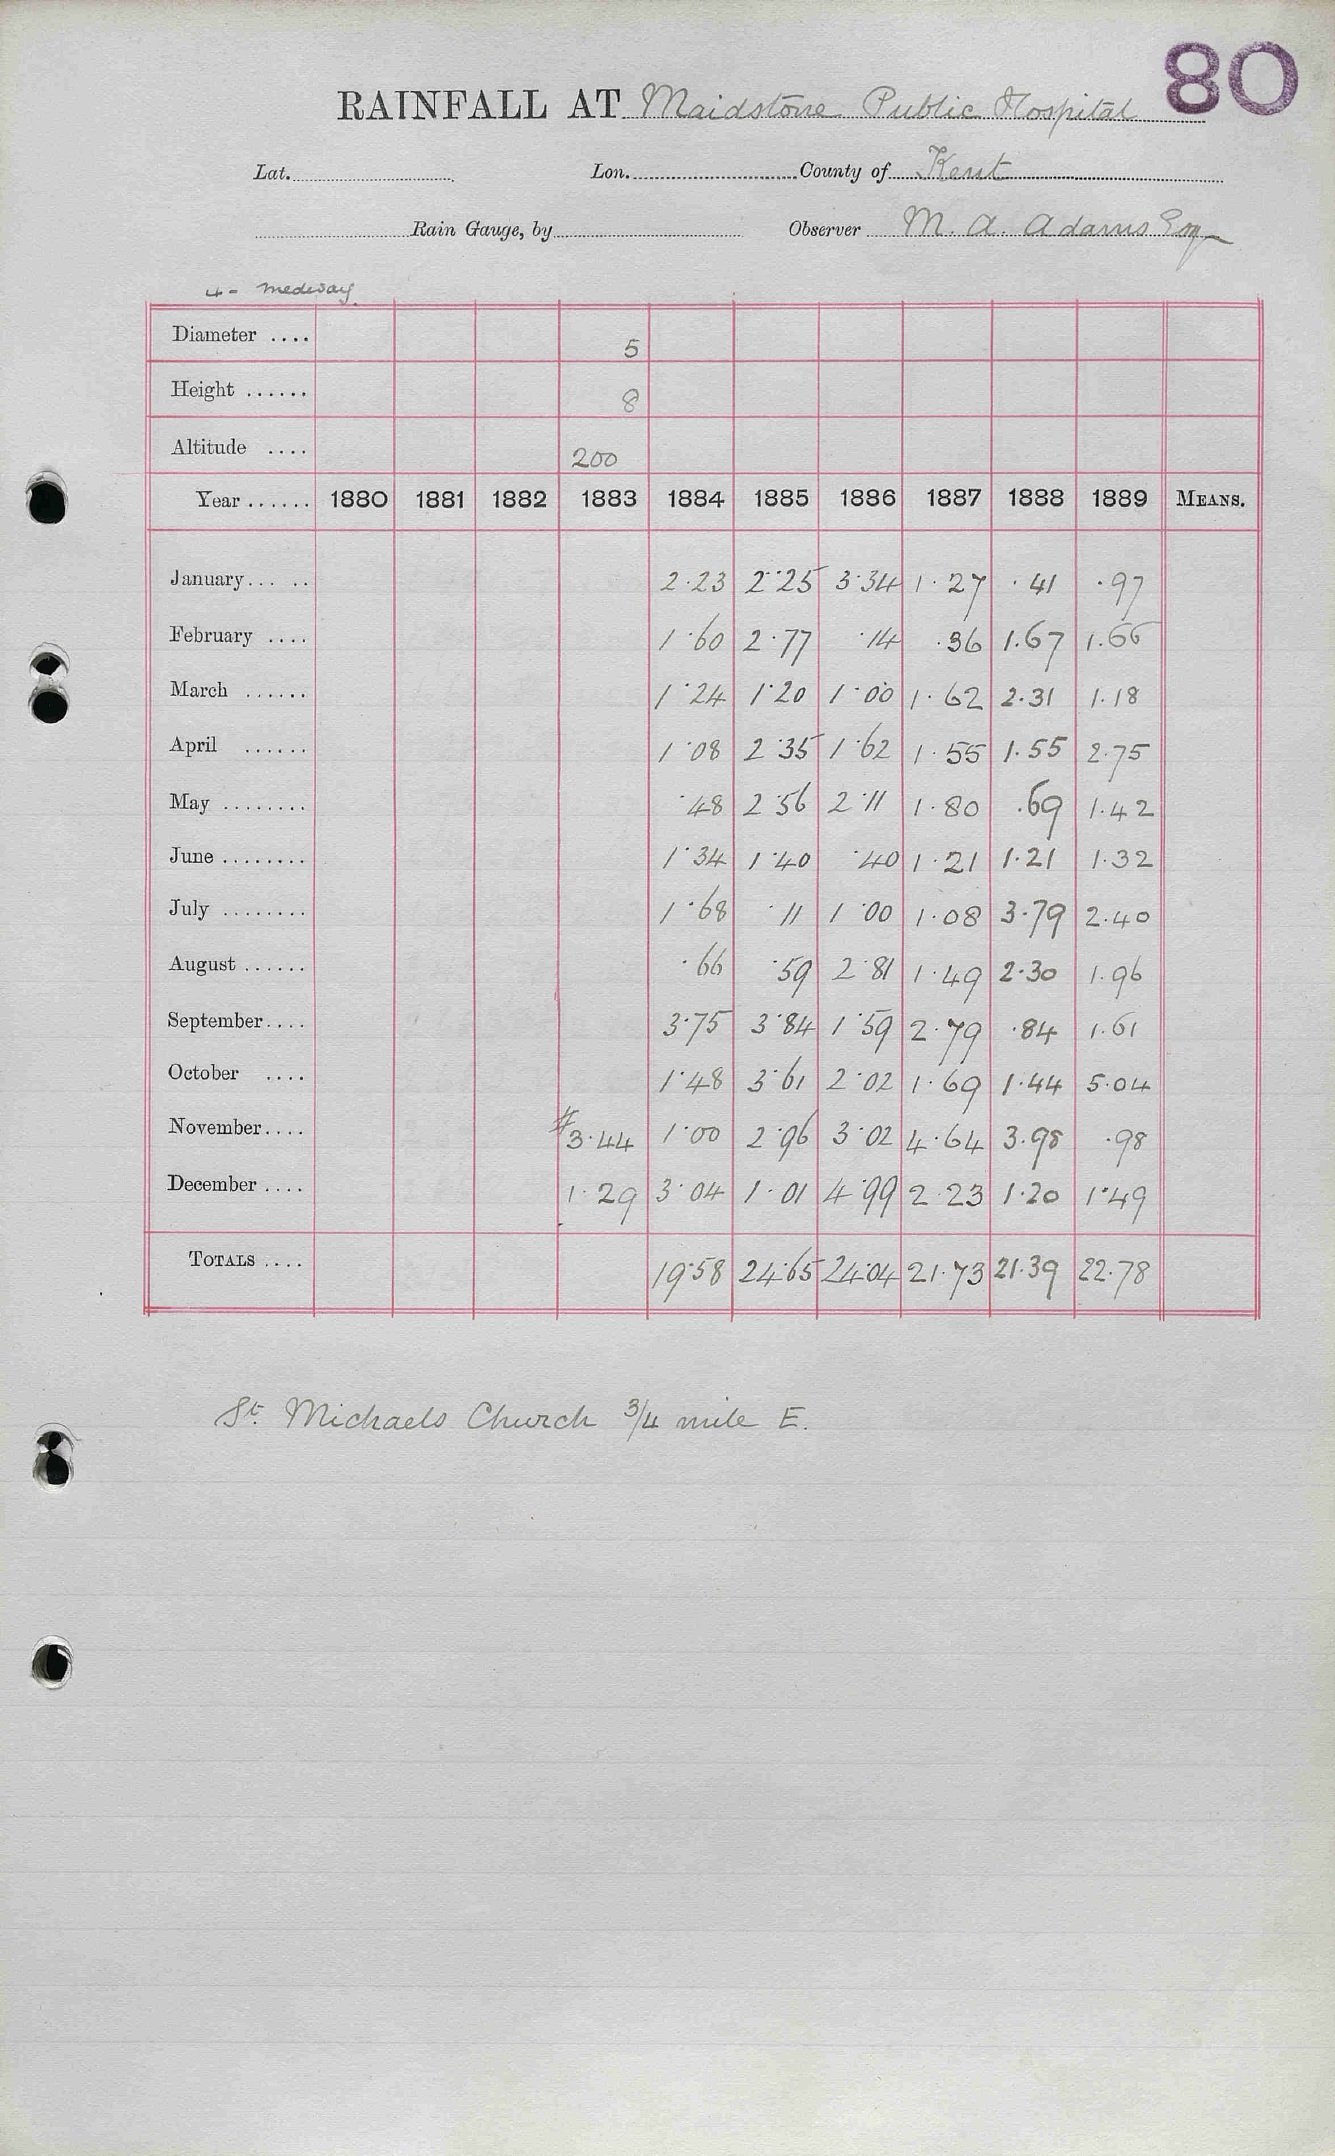 80
RAINFALL AT Maidstone Public Hospital
Lat. Lon. County of Kent
Rain Gauge, by Observer M. A. Adams Esq
4 - Medway
Diameter .... 5
Height ...... 8
Altitude .... 200
Year ...... 1880 1881 1882 1883 1884 1885 1886 1887 1888 1889 MEANS.
January... .. 2.23 2.25 3.34 1.27 .41 .97
February .... 1.60 2.77 .14 .36 1.67 1.66
March ...... 1.24 1.20 1.00 1.62 2.31 1.18
April ...... 1.08 2.35 1.62 1.55 1.55 2.75
May ........ .48 2.56 2.11 1.80 .69 1.42
June ........ 1.34 1.40 .40 1.21 1.21 1.32
July ........ 1.68 .11 1.00 1.08 3.79 2.40
August ...... .66 .59 2.81 1.49 2.30 1.96
September.... 3.75 3.84 1.59 2.79 .84 1.61
October .... 1.48 3.61 2.02 1.69 1.44 5.04
November.... #3.44 1.00 2.96 3.02 4.64 3.98 .98
December .... 1.29 3.04 1.01 4.99 2.23 1.20 1.49
TOTALS .... 19.58 24.65 24.04 21.73 21.39 22.78
St. Michaels Church 3/4 mile E.